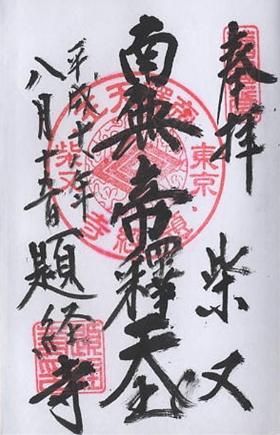 奉拝
柴又
南無帝釋天王
平成十六年
八月十五日
題経寺
東京
柴又